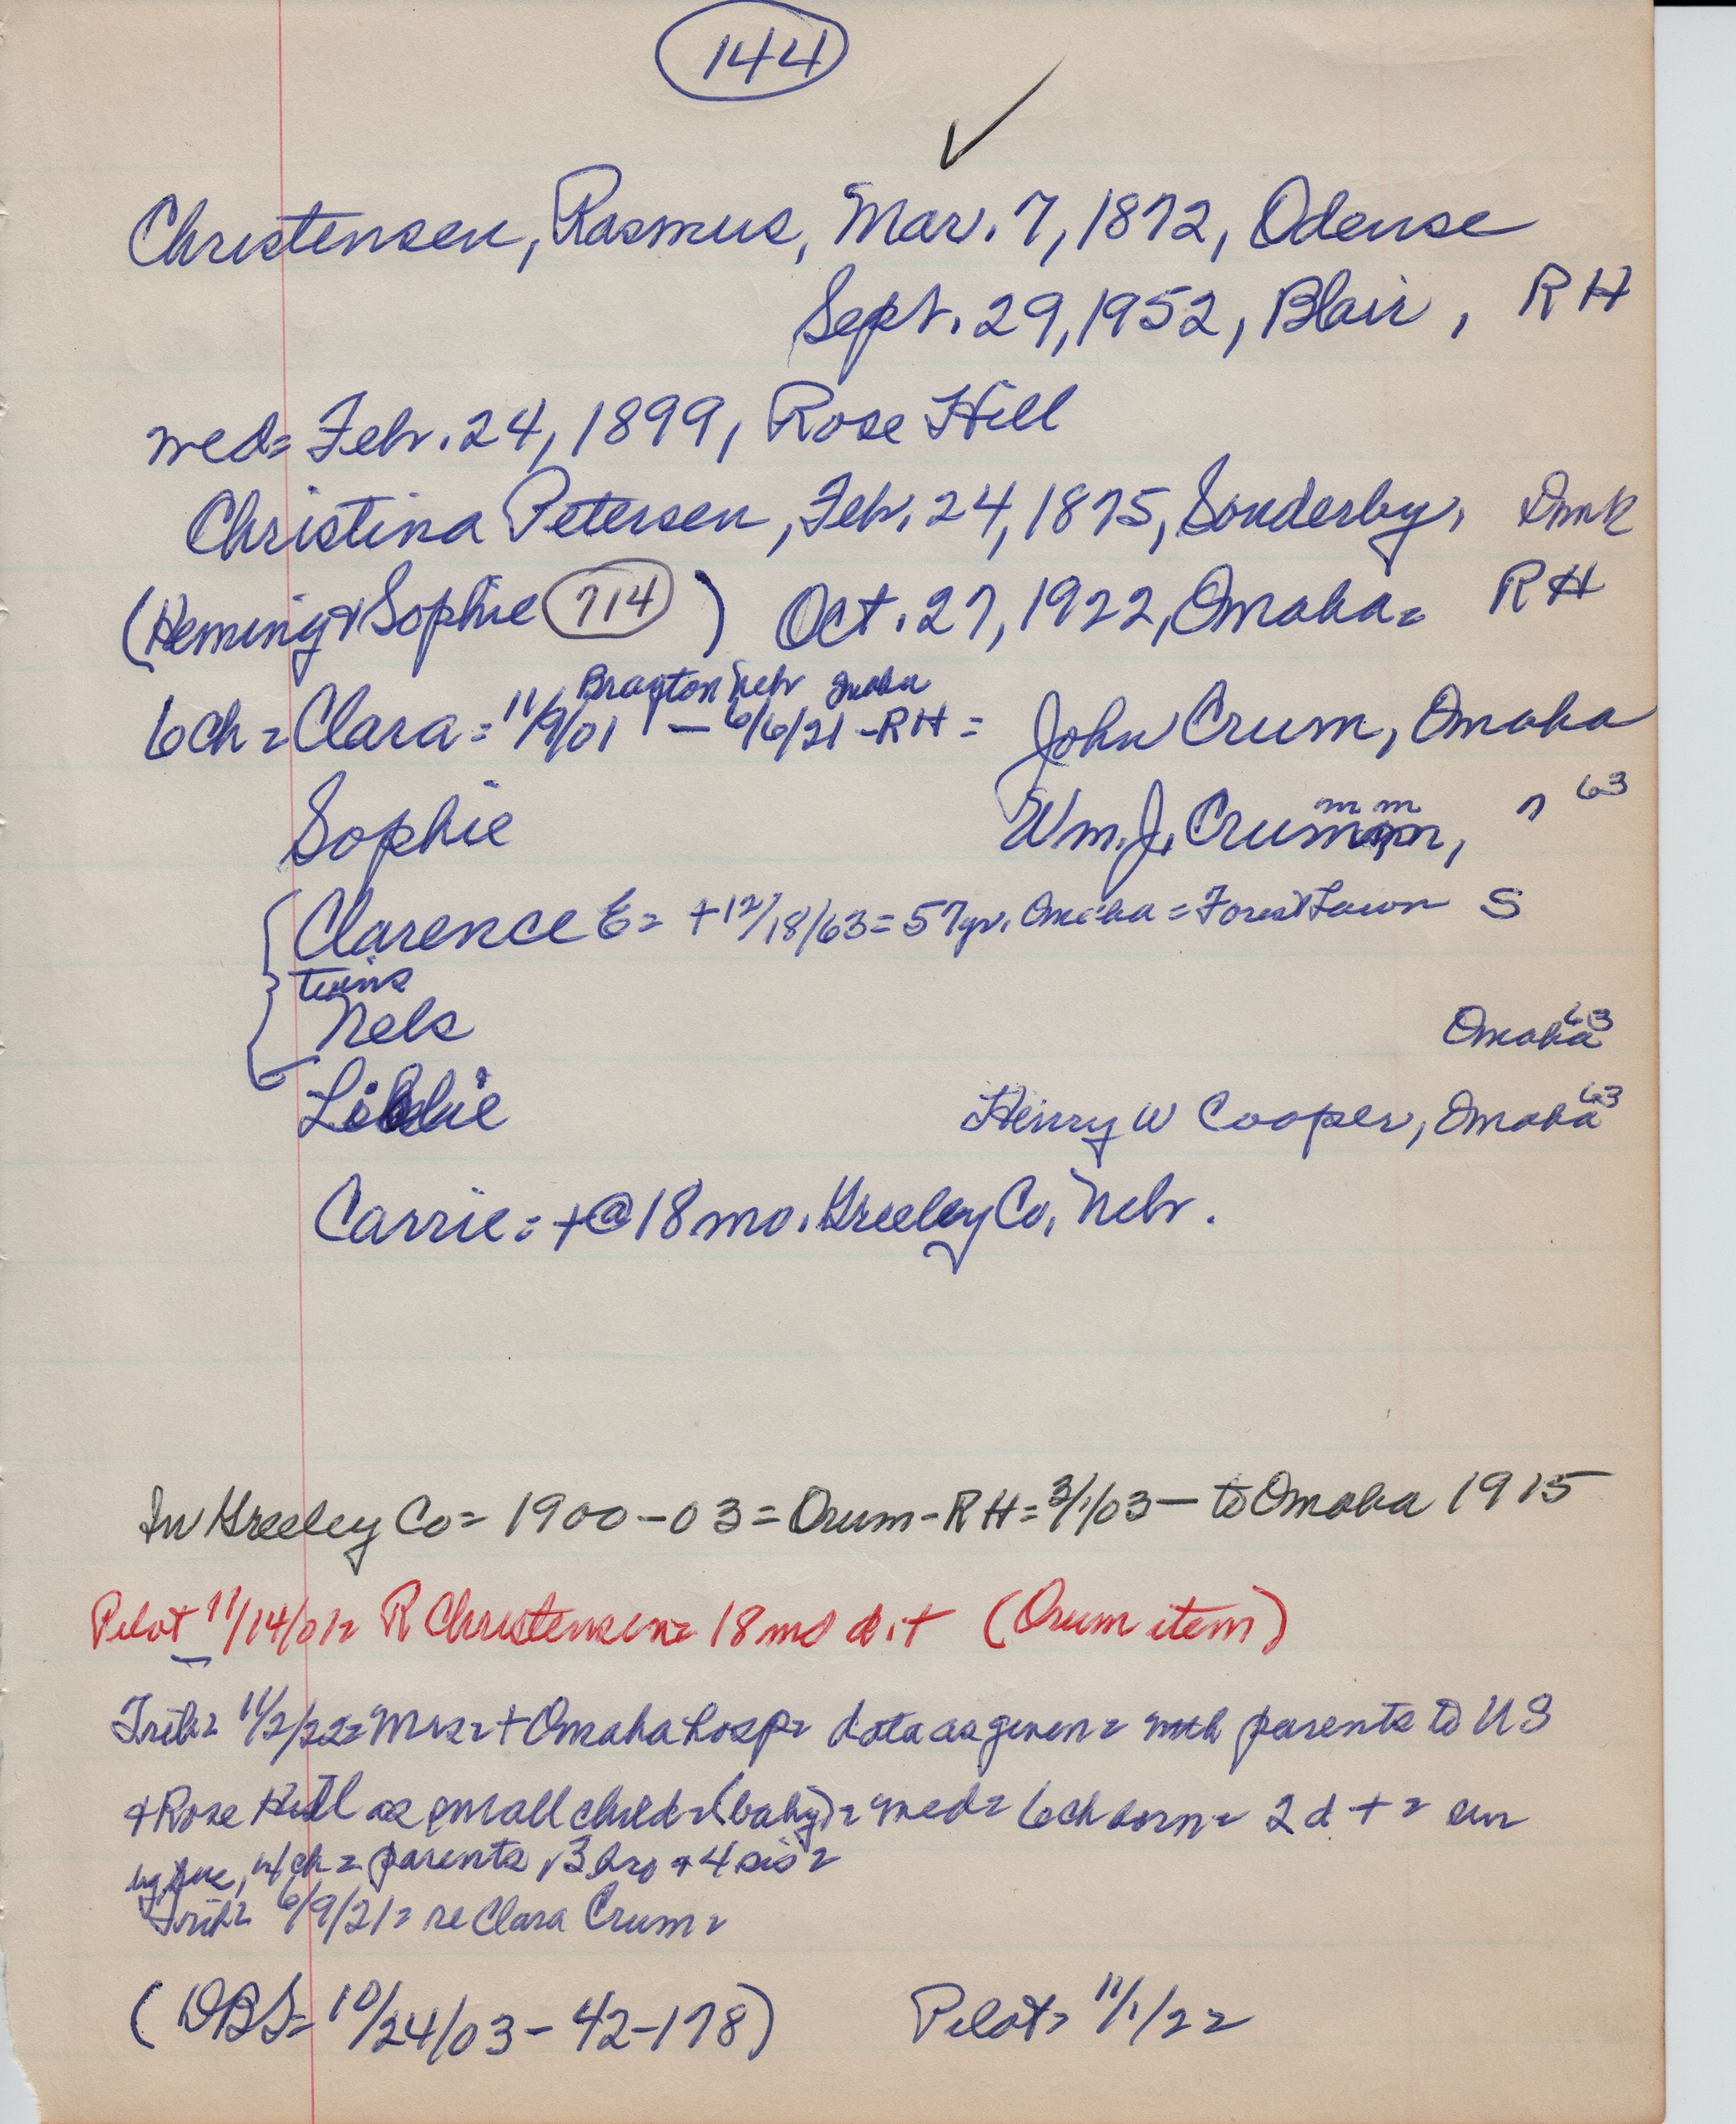 144
✓
Christensen, Rasmus, Mar. 7, 1872, Odense
Sept. 29, 1952, Blair, RH
med= Febr. 24, 1899, Rose Hill
Christina Petersen, Feb. 24, 1875, Sonderby, Dmk
(Heming & Sophie 714) Oct. 27, 1922, Omaha= RH
Brayton Nebr Omaha
6ch= Clara= 11/9/01 — 6/6/21 - RH = John Crum, Omaha
Sophie Wm. J. Crumm, " 63
{ Clarence E= +12/18/63= 57yr. Omaha = Forest Lawn S
twins
Nels Omaha 63
Henry W Cooper, Omaha 63
Carrie= +@18mo. Greeley Co, Nebr.
In Greeley Co= 1900-03= Orum-RH= 3/1/03 — to Omaha 1915
Pilot 11/14/01= R Christensen= 18 mo d. + (Orum item)
Trib= 11/2/22= Mrs= + Omaha hosp= data as given= with parents to US
& Rose Hill as small child= (baby)= med= 6ch born= 2 d += sur
by hus, 4/ch= parents, 3 bro & 4 sis=
Trib= 6/9/21= re Clara Crum=
(DBS= 10/24/03 - 42-178) Pilot= 11/1/22